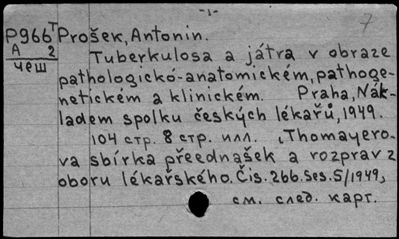 -1-
7
P966T Prošek, Antonin.
A 2 Tuberkulosa a játra v obraze
чеш pathologickó-anatomickém, pathoge-
netickém a klinickém. Praha, Nák-
ladem spolku českých lékařů, 1949.
104 стр. 8 стр. илл. (Thomayero-
va sbírka přeednašek a rozprav z
oboru lékařského. Čis. 266. Ses. 5/1949)
см. след. карт.